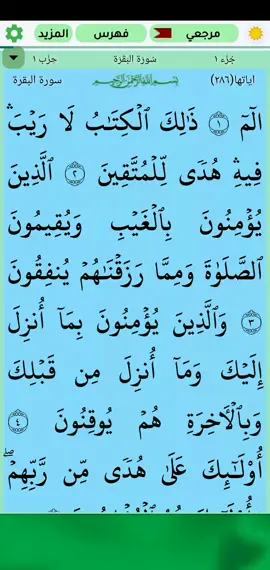 مرجعي فهرس المزيد
جُزء ١ سُورة البَقَرَة حِزب ١
اياتها(٢٨٦) بسم الله الرحمن الرحيم سورة البقرة
الٓمٓ ١ ذَٰلِكَ ٱلۡكِتَٰبُ لَا رَيۡبَۛ
فِيهِۛ هُدٗى لِّلۡمُتَّقِينَ ٢ ٱلَّذِينَ
يُؤۡمِنُونَ بِٱلۡغَيۡبِ وَيُقِيمُونَ
ٱلصَّلَوٰةَ وَمِمَّا رَزَقۡنَٰهُمۡ يُنفِقُونَ
٣ وَٱلَّذِينَ يُؤۡمِنُونَ بِمَآ أُنزِلَ
إِلَيۡكَ وَمَآ أُنزِلَ مِن قَبۡلِكَ
وَبِٱلۡأٓخِرَةِ هُمۡ يُوقِنُونَ ٤
أُوْلَٰٓئِكَ عَلَىٰ هُدٗى مِّن رَّبِّهِمۡۖ